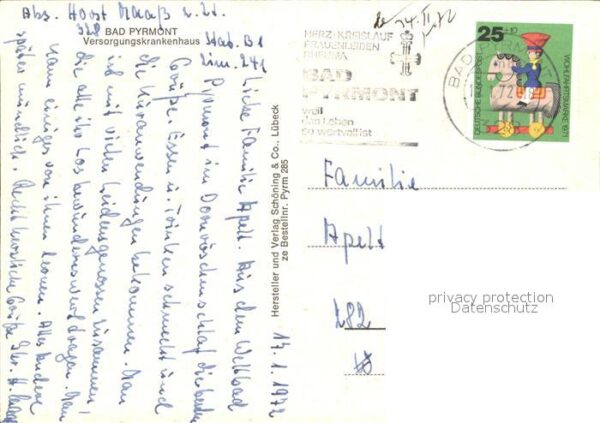 Abs. Horst Maaß z. Zt.
328 BAD PYRMONT
Versorgungskrankenhaus Stab. B1
Zim. 241
HERZ·KREISLAUF
FRAUENLEIDEN
RHEUMA
BAD
PYRMONT
weil
das Leben
so wertvoll ist
BAD PYRMONT
72
25+10
WOHLFAHRTSMARKE 1971
DEUTSCHE BUNDESPOST
13.1.1972
Liebe Familie Apelt. Aus dem Weltbad
Pyrmont im Dornröschenschlaf die besten
Grüße. Essen u. Trinken schmeckt und
die Kuranwendungen bekommen. Man
ist mit vielen Leidensgenossen zusammen
die alle ihr Los bewundernswert tragen. Man
kann einiges von ihnen lernen. Alles andere
später mündlich. Recht herzliche Grüße Ihr H.
Hersteller und Verlag Schöning & Co., Lübeck
ze Bestellnr. Pyrm 285
Familie
Apelt
282
privacy protection
Datenschutz